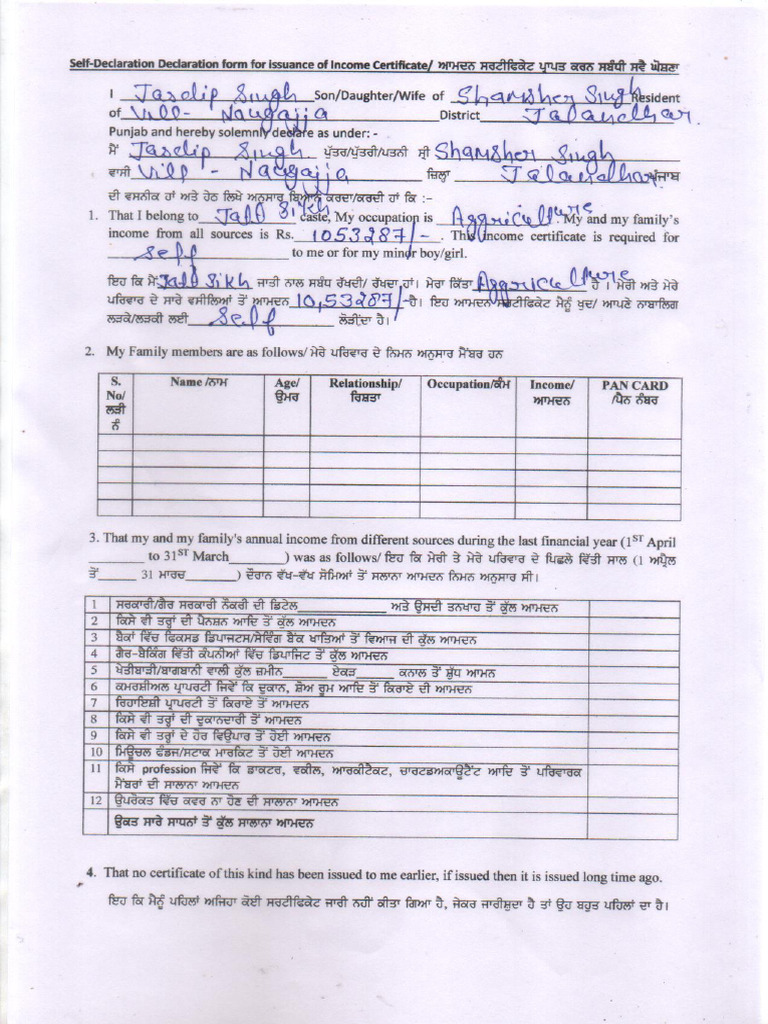 Self-Declaration Declaration form for issuance of Income Certificate/ ਆਮਦਨ ਸਰਟੀਫਿਕੇਟ ਪ੍ਰਾਪਤ ਕਰਨ ਸਬੰਧੀ ਸਵੈ ਘੋਸ਼ਣਾ
I Jasdip Singh Son/Daughter/Wife of Shamsher Singh Resident
of Vill- Naugajja District Jalandhar
Punjab and hereby solemnly declare as under: -
ਮੈਂ Jasdip Singh ਪੁੱਤਰ/ਪੁੱਤਰੀ/ਪਤਨੀ ਸ੍ਰੀ Shamsher Singh
ਵਾਸੀ Vill - Naugajja ਜ਼ਿਲ੍ਹਾ Jalandhar ਪੰਜਾਬ
ਦੀ ਵਸਨੀਕ ਹਾਂ ਅਤੇ ਹੇਠ ਲਿਖੇ ਅਨੁਸਾਰ ਬਿਆਨ ਕਰਦਾ/ਕਰਦੀ ਹਾਂ ਕਿ :-
1. That I belong to Jatt Sikh caste, My occupation is Aggriculture My and my family's
income from all sources is Rs. 1053287/-. This income certificate is required for
Self to me or for my minor boy/girl.
ਇਹ ਕਿ ਮੈਂ Jatt Sikh ਜਾਤੀ ਨਾਲ ਸਬੰਧ ਰੱਖਦੀ/ ਰੱਖਦਾ ਹਾਂ। ਮੇਰਾ ਕਿੱਤਾ Aggriculture ਹੈ । ਮੇਰੀ ਅਤੇ ਮੇਰੇ
ਪਰਿਵਾਰ ਦੇ ਸਾਰੇ ਵਸੀਲਿਆਂ ਤੋਂ ਆਮਦਨ 10,53287/- ਹੈ। ਇਹ ਆਮਦਨ ਸਰਟੀਫਿਕੇਟ ਮੈਨੂੰ ਖੁਦ/ ਆਪਣੇ ਨਾਬਾਲਿਗ
ਲੜਕੇ/ਲੜਕੀ ਲਈ Self ਲੋੜੀਂਦਾ ਹੈ।
2. My Family members are as follows/ ਮੇਰੇ ਪਰਿਵਾਰ ਦੇ ਨਿਮਨ ਅਨੁਸਾਰ ਮੈਂਬਰ ਹਨ
S. No/ ਲੜੀ ਨੰ Name /ਨਾਮ Age/ ਉਮਰ Relationship/ ਰਿਸ਼ਤਾ Occupation/ਕੰਮ Income/ ਆਮਦਨ PAN CARD /ਪੈਨ ਨੰਬਰ
3. That my and my family's annual income from different sources during the last financial year (1ST April
________ to 31ST March________) was as follows/ ਇਹ ਕਿ ਮੇਰੀ ਤੇ ਮੇਰੇ ਪਰਿਵਾਰ ਦੇ ਪਿਛਲੇ ਵਿੱਤੀ ਸਾਲ (1 ਅਪ੍ਰੈਲ
ਤੋਂ______ 31 ਮਾਰਚ_______) ਦੌਰਾਨ ਵੱਖ-ਵੱਖ ਸੋਮਿਆਂ ਤੋਂ ਸਲਾਨਾ ਆਮਦਨ ਨਿਮਨ ਅਨੁਸਾਰ ਸੀ।
1 ਸਰਕਾਰੀ/ਗੈਰ ਸਰਕਾਰੀ ਨੌਕਰੀ ਦੀ ਡਿਟੇਲ____________ ਅਤੇ ਉਸਦੀ ਤਨਖਾਹ ਤੋਂ ਕੁੱਲ ਆਮਦਨ
2 ਕਿਸੇ ਵੀ ਤਰ੍ਹਾਂ ਦੀ ਪੈਨਸ਼ਨ ਆਦਿ ਤੋਂ ਕੁੱਲ ਆਮਦਨ
3 ਬੈਂਕਾਂ ਵਿੱਚ ਫਿਕਸਡ ਡਿਪਾਜਟਸ/ਸੇਵਿੰਗ ਬੈਂਕ ਖਾਤਿਆਂ ਤੋਂ ਵਿਆਜ ਦੀ ਕੁੱਲ ਆਮਦਨ
4 ਗੈਰ-ਬੈਕਿੰਗ ਵਿੱਤੀ ਕੰਪਨੀਆਂ ਵਿੱਚ ਡਿਪਾਜਿਟ ਤੋਂ ਕੁੱਲ ਆਮਦਨ
5 ਖੇਤੀਬਾੜੀ/ਬਾਗਬਾਨੀ ਵਾਲੀ ਕੁੱਲ ਜ਼ਮੀਨ_______ ਏਕੜ______ ਕਨਾਲ ਤੋਂ ਸ਼ੁੱਧ ਆਮਨ
6 ਕਮਰਸ਼ੀਅਲ ਪ੍ਰਾਪਰਟੀ ਜਿਵੇਂ ਕਿ ਦੁਕਾਨ, ਸ਼ੋਅ ਰੂਮ ਆਦਿ ਤੋਂ ਕਿਰਾਏ ਦੀ ਆਮਦਨ
7 ਰਿਹਾਇਸ਼ੀ ਪ੍ਰਾਪਰਟੀ ਤੋਂ ਕਿਰਾਏ ਤੋਂ ਆਮਦਨ
8 ਕਿਸੇ ਵੀ ਤਰ੍ਹਾਂ ਦੀ ਦੁਕਾਨਦਾਰੀ ਤੋਂ ਆਮਦਨ
9 ਕਿਸੇ ਵੀ ਤਰ੍ਹਾਂ ਦੇ ਹੋਰ ਵਿਉਪਾਰ ਤੋਂ ਹੋਈ ਆਮਦਨ
10 ਮਿਊਚਲ ਫੰਡਜ/ਸਟਾਕ ਮਾਰਕਿਟ ਤੋਂ ਹੋਈ ਆਮਦਨ
11 ਕਿਸੇ profession ਜਿਵੇਂ ਕਿ ਡਾਕਟਰ, ਵਕੀਲ, ਆਰਕੀਟੈਕਟ, ਚਾਰਟਡਅਕਾਊਟੈਂਟ ਆਦਿ ਤੋਂ ਪਰਿਵਾਰਕ
ਮੈਂਬਰਾਂ ਦੀ ਸਾਲਾਨਾ ਆਮਦਨ
12 ਉਪਰੋਕਤ ਵਿੱਚ ਕਵਰ ਨਾ ਹੋਣ ਦੀ ਸਾਲਾਨਾ ਆਮਦਨ
ਉਕਤ ਸਾਰੇ ਸਾਧਨਾਂ ਤੋਂ ਕੁੱਲ ਸਾਲਾਨਾ ਆਮਦਨ
4. That no certificate of this kind has been issued to me earlier, if issued then it is issued long time ago.
ਇਹ ਕਿ ਮੈਨੂੰ ਪਹਿਲਾਂ ਅਜਿਹਾ ਕੋਈ ਸਰਟੀਫਿਕੇਟ ਜਾਰੀ ਨਹੀਂ ਕੀਤਾ ਗਿਆ ਹੈ, ਜੇਕਰ ਜਾਰੀਸ਼ੁਦਾ ਹੈ ਤਾਂ ਉਹ ਬਹੁਤ ਪਹਿਲਾਂ ਦਾ ਹੈ।